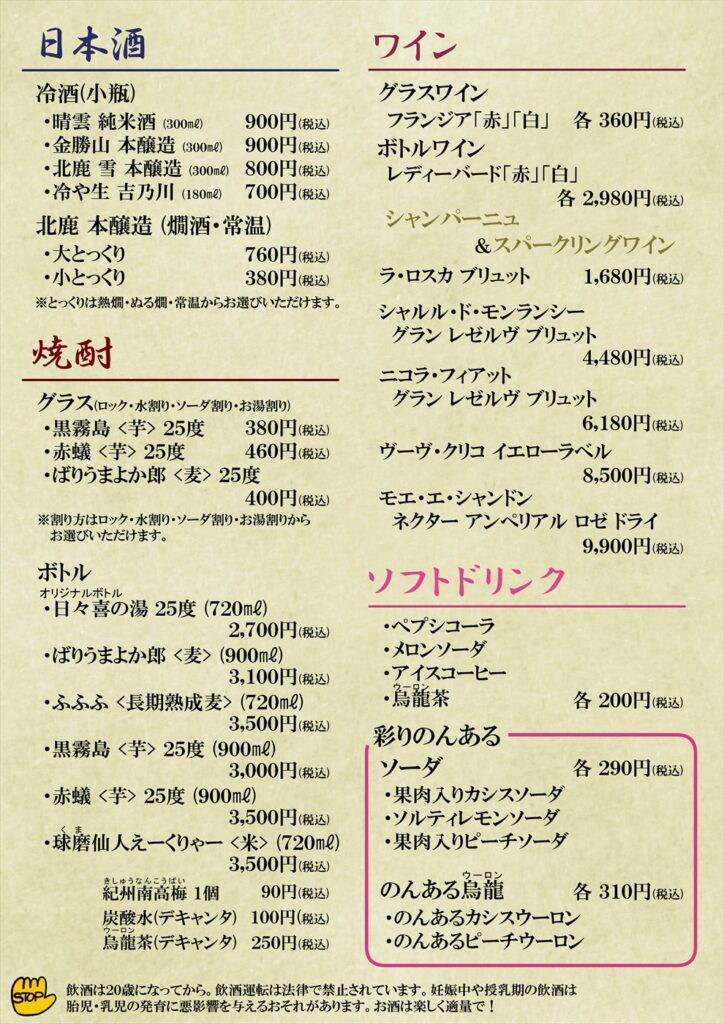 日本酒
冷酒(小瓶)
・晴雲 純米酒 (300㎖) 900円(税込)
・金勝山 本醸造 (300㎖) 900円(税込)
・北鹿 雪 本醸造 (300㎖) 800円(税込)
・冷や生 吉乃川 (180㎖) 700円(税込)
北鹿 本醸造 (燗酒・常温)
・大とっくり 760円(税込)
・小とっくり 380円(税込)
※とっくりは熱燗・ぬる燗・常温からお選びいただけます。
焼酎
グラス(ロック・水割り・ソーダ割り・お湯割り)
・黒霧島 <芋> 25度 380円(税込)
・赤蟻 <芋> 25度 460円(税込)
・ばりうまよか郎 <麦> 25度
400円(税込)
※割り方はロック・水割り・ソーダ割り・お湯割りから
お選びいただけます。
ボトル
オリジナルボトル
・日々喜の湯 25度 (720㎖)
2,700円(税込)
・ばりうまよか郎 <麦> (900㎖)
3,100円(税込)
・ふふふ <長期熟成麦> (720㎖)
3,500円(税込)
・黒霧島 <芋> 25度 (900㎖)
3,000円(税込)
・赤蟻 <芋> 25度 (900㎖)
3,500円(税込)
くま
・球磨仙人えーくりゃー <米> (720㎖)
3,500円(税込)
きしゅうなんこうばい
紀州南高梅 1個 90円(税込)
炭酸水(デキャンタ) 100円(税込)
ウーロン
烏龍茶(デキャンタ) 250円(税込)
ワイン
グラスワイン
フランジア「赤」「白」 各 360円(税込)
ボトルワイン
レディーバード「赤」「白」
各 2,980円(税込)
シャンパーニュ
&スパークリングワイン
ラ・ロスカ ブリュット 1,680円(税込)
シャルル・ド・モンランシー
グラン レゼルヴ ブリュット
4,480円(税込)
ニコラ・フィアット
グラン レゼルヴ ブリュット
6,180円(税込)
ヴーヴ・クリコ イエローラベル
8,500円(税込)
モエ・エ・シャンドン
ネクター アンペリアル ロゼ ドライ
9,900円(税込)
ソフトドリンク
・ペプシコーラ
・メロンソーダ
・アイスコーヒー
ウーロン
・烏龍茶 各 200円(税込)
彩りのんある
ソーダ 各 290円(税込)
・果肉入りカシスソーダ
・ソルティレモンソーダ
・果肉入りピーチソーダ
ウーロン
のんある烏龍 各 310円(税込)
・のんあるカシスウーロン
・のんあるピーチウーロン
STOP
飲酒は20歳になってから。飲酒運転は法律で禁止されています。妊娠中や授乳期の飲酒は
胎児・乳児の発育に悪影響を与えるおそれがあります。お酒は楽しく適量で!